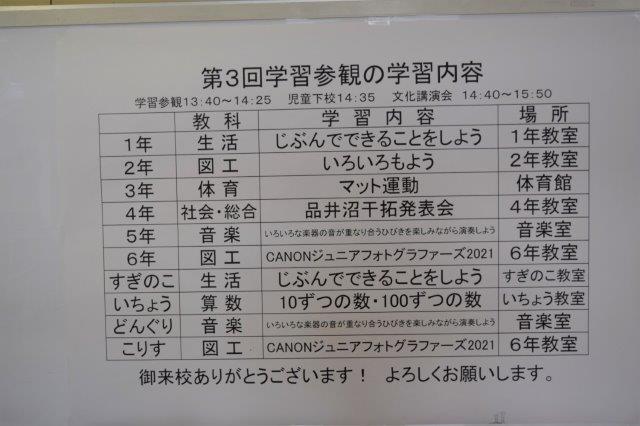 第3回学習参観の学習内容
学習参観13:40～14:25 児童下校14:35 文化講演会 14:40～15:50
教科 学習内容 場所
1年 生活 じぶんでできることをしよう 1年教室
2年 図工 いろいろもよう 2年教室
3年 体育 マット運動 体育館
4年 社会・総合 品井沼干拓発表会 4年教室
5年 音楽 いろいろな楽器の音が重なり合うひびきを楽しみながら演奏しよう 音楽室
6年 図工 CANONジュニアフォトグラファーズ2021 6年教室
すぎのこ 生活 じぶんでできることをしよう すぎのこ教室
いちょう 算数 10ずつの数・100ずつの数 いちょう教室
どんぐり 音楽 いろいろな楽器の音が重なり合うひびきを楽しみながら演奏しよう 音楽室
こりす 図工 CANONジュニアフォトグラファーズ2021 6年教室
御来校ありがとうございます！ よろしくお願いします。